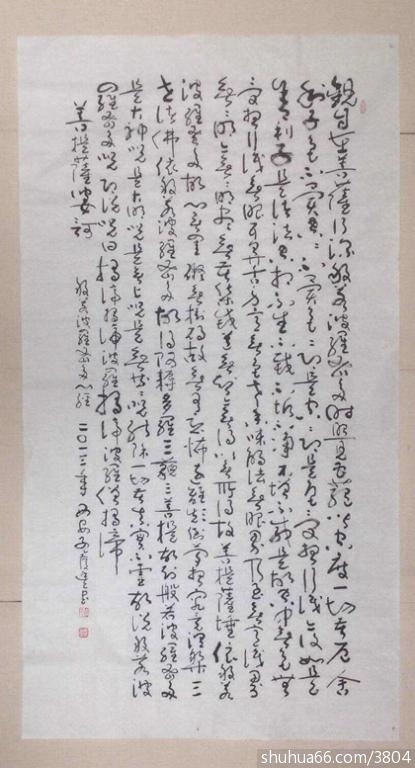 觀自在菩薩行深般若波羅蜜多時照見五蘊皆空度一切苦厄舍
利子色不異空空不異色色即是空空即是色受想行識亦復如是
舍利子是諸法空相不生不滅不垢不淨不增不減是故空中無色無
受想行識無眼耳鼻舌身意無色聲香味觸法無眼界乃至無意識界
無無明亦無無明盡無苦集滅道無智亦無得以無所得故菩提薩埵依般若
波羅蜜多故心無罣礙無罣礙故無有恐怖遠離顛倒夢想究竟涅槃三
世諸佛依般若波羅蜜多故得阿耨多羅三藐三菩提故知般若波羅蜜多
是大神咒是大明咒是無上咒是無等等咒能除一切苦真實不虛故說般若波
羅蜜多咒即說咒曰揭諦揭諦波羅揭諦波羅僧揭諦
菩提薩婆訶
般若波羅蜜多心經 二〇一三年
shuhua66.com/3804